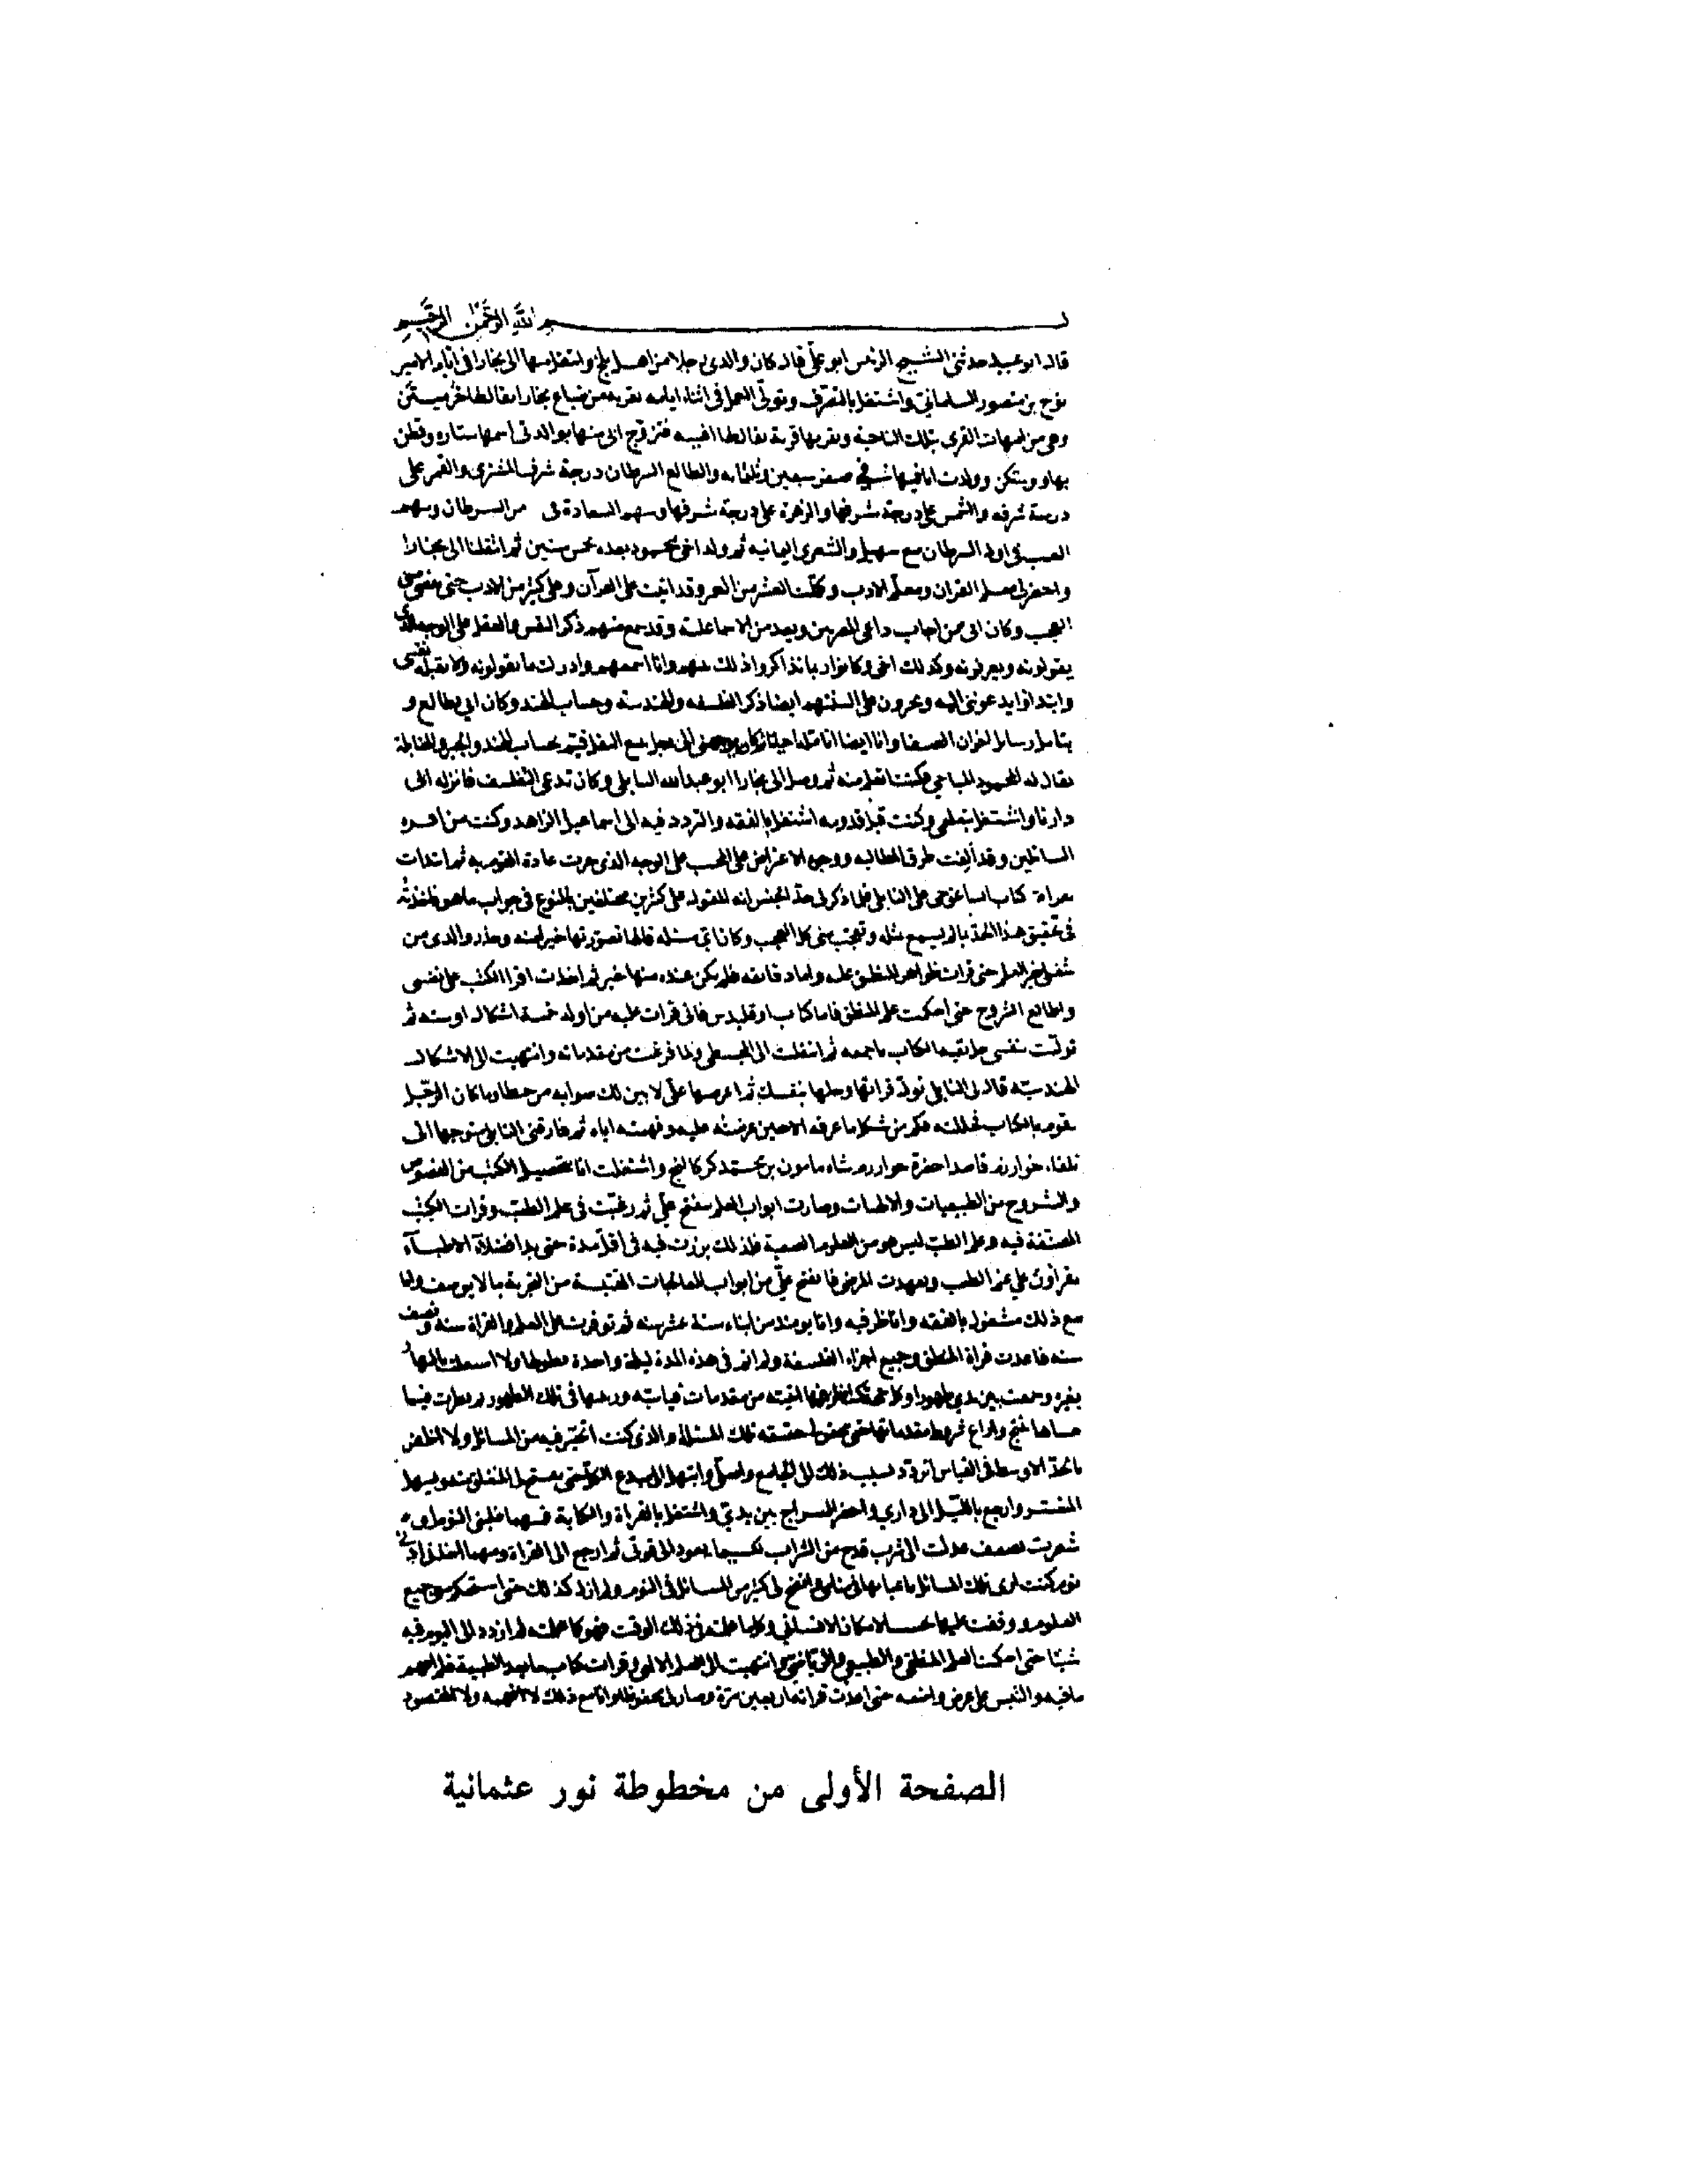 بسم الله الرحمن الرحيم
قال ابو عبيد حدثنى الشيخ الرئيس ابو على قال كان والدى رجلا من اهل بلخ وانتقل منها الى بخارا فى ايام الامير
نوح بن منصور السامانى واشتغل بالتصرف وتولى العمل فى اثناء ايامه بقرية من ضياع بخارا يقال لها خرميثن
وهى من امهات القرى بتلك الناحية وبقربها قرية يقال لها افشنه فتزوج ابى منها بوالدتى اسمها ستاره وقطن
بها وسكن وولدت انا فيها فى صفر سبعين وثلثمايه والطالع السرطان درجة شرف المشترى والقمر على
درجة شرفه والشمس على درجة شرفها والزهرة على درجة شرفها وسهم السعادة فى من السرطان وسهم
الغيب فى اول السرطان مع سهيل والشعرى اليمانيه ثم ولد اخى محمود بعده بخمس سنين ثم انتقلنا الى بخارا
واحضر لى معلم القران ومعلم الادب وكملت العشر من العمر وقد اتيت على القرآن وعلى كثير من الادب حتى يقضى منى
العجب وكان ابى ممن اجاب داعى المصريين ويعد من الاسماعيلية وقد سمع منهم ذكر النفس والعقل على الوجه الذى
يقولونه ويعرفونه وكذلك اخى وكانوا ربما تذاكروا ذلك بينهم وانا اسمعهم وادرك ما يقولونه ولا تقبله نفسى
وابتداوا يدعوننى اليه ويجرون على السنتهم ايضا ذكر الفلسفه والهندسة وحساب الهند وكان ابى يطالع و
يتامل رسايل اخوان الصفا وانا ايضا اتامله احيانا وكان يوجهنى الى رجل يبيع البقل قيم بحساب الهند والجبر والمقابلة
يقال له محمود المساحى فكنت اتعلم منه ثم وصل الى بخارا ابو عبدالله الناتلى وكان يدعى التفلسف فانزله ابى
دارنا واشتغل بتعليمى وكنت قبل قدومه اشتغل بالفقه والتردد فيه الى اسماعيل الزاهد وكنت من
السائلين وقد ألفت طرق المطالبه ووجوه الاعتراض على المجيب على الوجه الذى جرت عادة القوم به ثم ابتدات
بقراة كتاب ايساغوجى على الناتلى فلما ذكر لى حد الجنس انه المقول على كثيرين مختلفين بالنوع فى جواب ما هو فاخذته
فى تحقيق هذا الحد بما لم يسمع بمثله وتعجب منى كل العجب وكان اى مسئله قالها تصورتها خيرا منه وحذر والدى من
شغلى بغير العلم حتى قرات ظواهر المنطق عليه واما دقائقه فلم يكن عنده منها خبر ثم اخذت اقرا الكتب على نفسى
واطالع الشروح حتى احكمت علم المنطق فاما كتاب اوقليدس فانى قرات عليه من اوله خمسة اشكال او سته ثم
توليت بنفسى حل بقية الكتاب باجمعه ثم انتقلت الى المجسطى ولما فرغت من مقدماته وانتهيت الى الاشكال
الهندسية قال لى الناتلى تول قرائتها وحلها بنفسك ثم اعرضها على لابين لك صوابه من خطاه وما كان الرجل
يقوم بالكتاب فحللته فكم من شكل ما عرفه الا حين عرضته عليه وفهمته اياه ثم فارقنى الناتلى متوجها الى
تلقاء خوارزم قاصدا حضرة خوارزم شاه مامون بن محمد كركانج واشتغلت انا بتحصيل الكتب من الفصوص
والشروح من الطبيعيات والالهيات وصارت ابواب العلم ينفتح على ثم رغبت فى علم الطب وقرات الكتب
المصنفة فيه وعلم الطب ليس هو من العلوم الصعبة فلذلك برزت فيه فى اقل مدة حتى بدا فضلاء الاطباء
يقراون على علم الطب وتعهدت المرضى فانفتح على من ابواب المعالجات المقتبسة من التجربة ما لا يوصف وانا
مع ذلك مشغول بالفقه واناظر فيه وانا يومئذ من ابناء ستة عشر سنه ثم توفرت على العلم والقراة سنه ونصف
سنه فاعدت قراة المنطق وجميع اجزاء الفلسفة ولم انم فى هذه المدة ليلة واحدة بطولها ولا اشتغلت بالنهار
بغيره وجمعت بين يدى ظهورا وكل حجة انظر فيها اثبته من مقدمات قياسيه ورتبتها فى تلك الظهور ثم نظرت فيما
عساها تنتج واراع شروط مقدماتها حتى تحقق لى حقيقه تلك المسئلة والذى كنت اتحير فيه من المسائل ولا اظفر
بالحد الاوسط فى القياس اتردد بسبب ذلك الى الجامع واصلى وابتهل الى مبدع الكل حتى يفتح لى المنغلق منه ويسهل
المتعسر وارجع بالليل الى دارى واحضر السراج بين يدى واشتغل بالقراة والكتابة فمهما غلبنى النوم او
شعرت بضعف عدلت الى شرب قدح من الشراب لكيما يعود الى قوتى ثم ارجع الى القراة ومهما اخذنى ادنى
نوم كنت ارى تلك المسائل باعيانها فى منامى واتضح لى كثير من المسائل فى النوم ولم ازل كذلك حتى استحكم معى جميع
العلوم ووقفت عليها بحسب الامكان الانسانى وكلما علمته فى ذلك الوقت فهو كما علمته لم ازدد الى اليوم فيه
شيئا حتى احكمت العلم المنطقى والطبيعى والرياضى وانتهيت الى العلم الالهى وقرات كتاب مابعد الطبيعة فلم افهم
ما فيه والتبس على غرض واضعه حتى اعدت قرائته اربعين مرة وصار لى محفوظا وانا مع ذلك لا افهمه ولا المقصود
الصفحة الأولى من مخطوطة نور عثمانية